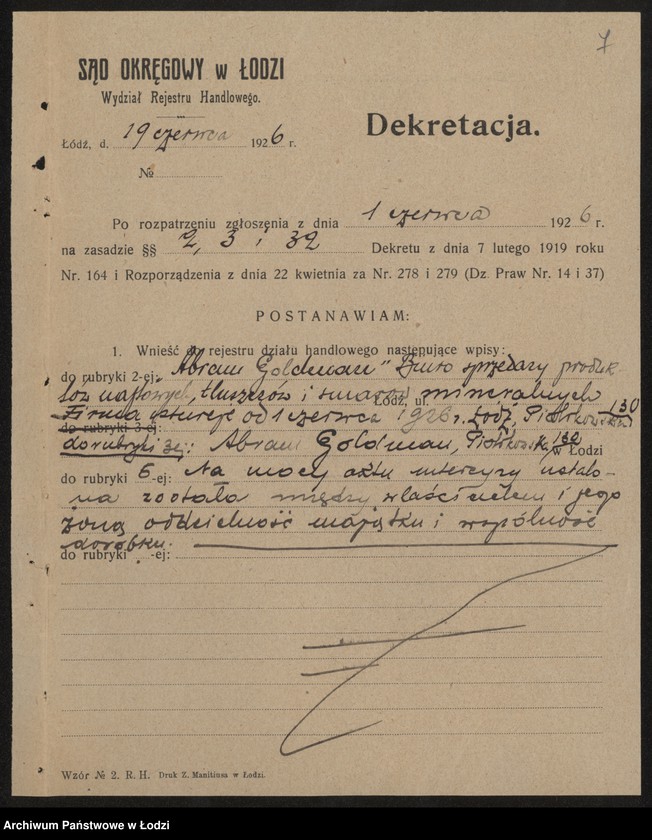 7
SĄD OKRĘGOWY w ŁODZI
Wydział Rejestru Handlowego.
Dekretacja.
Łódź, d. 19 czerwca 1926 r.
№
Po rozpatrzeniu zgłoszenia z dnia 1 czerwca 1926 r.
na zasadzie §§ 2, 3 i 32 Dekretu z dnia 7 lutego 1919 roku
Nr. 164 i Rozporządzenia z dnia 22 kwietnia za Nr. 278 i 279 (Dz. Praw Nr. 14 i 37)
POSTANAWIAM:
1. Wnieść do rejestru działu handlowego następujące wpisy:
do rubryki 2-ej: „Abram Goldman" Biuro sprzedaży produk-
tów naftowych, tłuszczów i smarów mineralnych
Łódź, ul.
Firma istnieje od 1 czerwca 1926 r. Łódź, Piotrkowska 130
do rubryki 3-ej:
do rubryki 3ej: Abram Goldman, Piotrkowska 132 w Łodzi
do rubryki 6-ej: Na mocy aktu intercyzy ustalo-
na została między właścicielem i jego
żoną oddzielność majątku i wspólność
dorobku.
do rubryki -ej:
Wzór № 2. R. H. Druk Z. Manitiusa w Łodzi.
Archiwum Państwowe w Łodzi